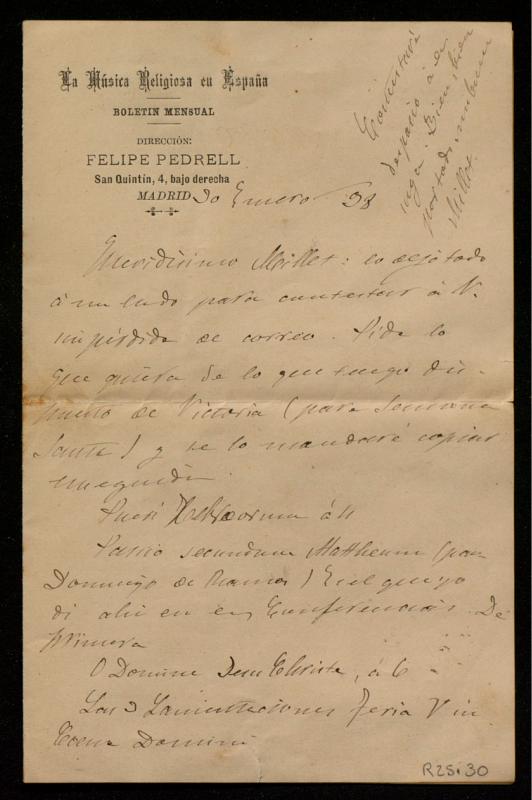 La Música Religiosa en España
BOLETIN MENSUAL
DIRECCIÓN:
FELIPE PEDRELL
San Quintín, 4, bajo derecha
MADRID 30 Enero 98
Contestaré
despacio á
Bien, bien
Millet
Queridisimo Millet: lo dejo todo
á un lado para contestar á V.
sin pérdida de correo. Pida lo
que quiera de lo que tengo dis-
puesto de Victoria (para Semana
Santa) y se lo mandaré copiar
enseguida.
Pueri Hebreorum á 4
Passio secundum Mattheum (para
Domingo de Ramos) Es el que yo
di ahi en las Conferencias. De
primera
O Domine Jesu Christe, á 6
Las 3 Lamentaciones Feria V in
Coena Domini
R25.30